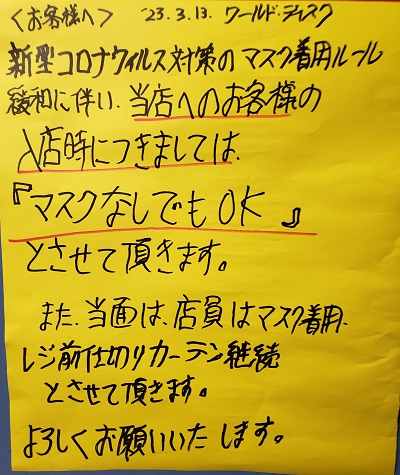 〈お客様へ〉 '23.3.13. ワールド・ディスク
新型コロナウィルス対策のマスク着用ルール
緩和に伴い、当店へのお客様の
入店時につきましては、
『マスクなしでもOK』
とさせて頂きます。
また、当面は、店員はマスク着用、
レジ前仕切りカーテン継続
とさせて頂きます。
よろしくお願いいたします。